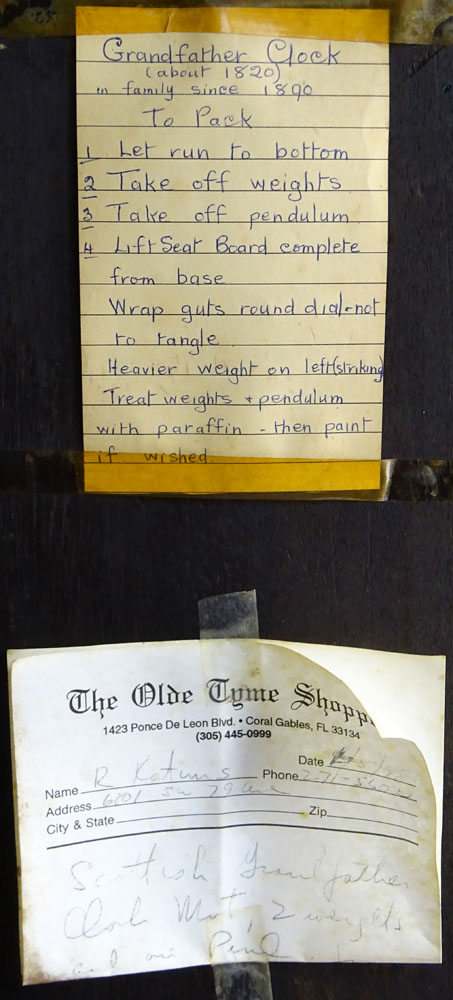 Grandfather Clock
(about 1820)
in family since 1890
To Pack
1 Let run to bottom
2 Take off weights
3 Take off pendulum
4 Lift Seat Board complete
from base
Wrap guts round dial-not
to tangle
Heavier weight on left(striking)
Treat weights + pendulum
with paraffin - then paint
if wished.
The Olde Tyme Shopp
1423 Ponce De Leon Blvd. • Coral Gables, FL 33134
(305) 445-0999
Date
Name R Phone
Address 6801 SW 79 ave
City & State Zip
Scottish Grandfather
Clock Mvt, 2 weights
and one Pend.